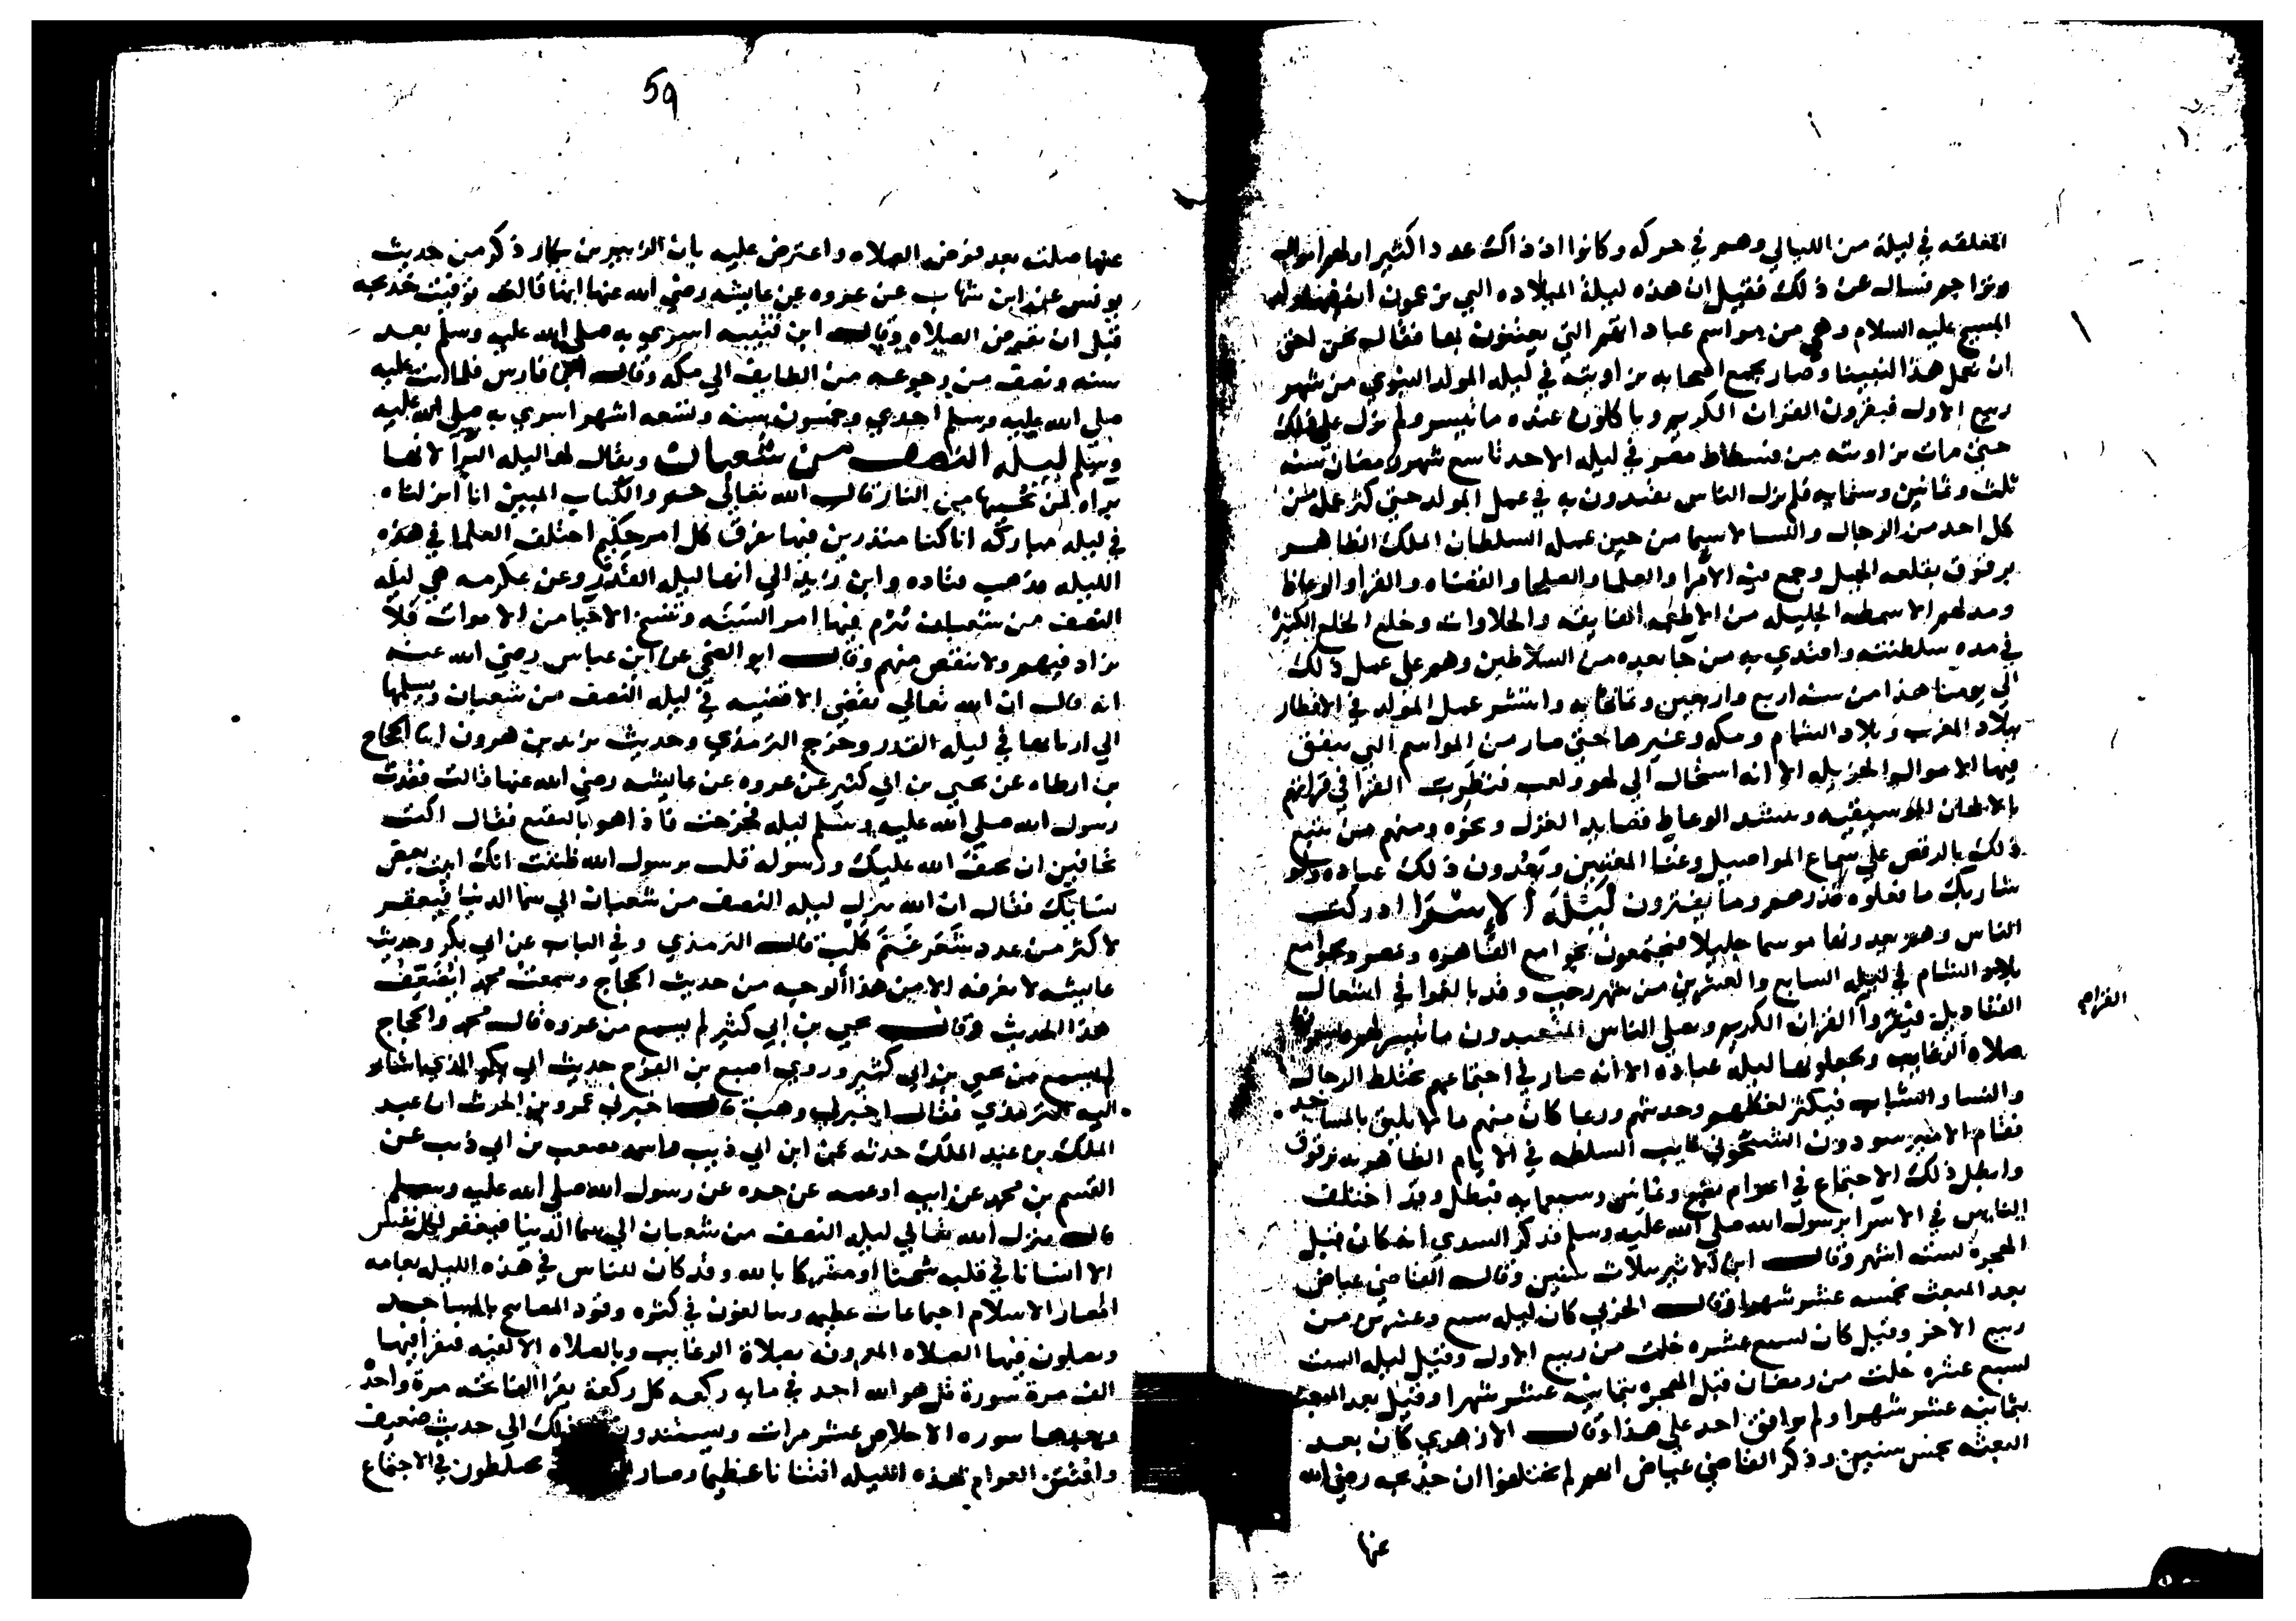 المغلقه في ليلة من الليالي وهم في حركه وكانوا اذ ذاك عددا كثيرا ولهم اموال
وتراجم فسال عن ذلك فقيل ان هذه ليلة الميلاده التي يزعمون ان فيها ولد
المسيح عليه السلام وهي من مواسم عبادانهم التي يعتنون بها فقال نحن احق
ان نعمل هذا لنبينا وصار يجمع اصحابه بزاويته في ليله المولد النبوي من شهر
ربيع الاول فيقرون القران الكريم وياكلون عنده ما تيسر ولم يزل على ذلك
حتى مات بزاويته من فسطاط مصر في ليله الاحد تاسع شهر رمضان سنه
ثلث وثمانين وستمايه فلم يزل الناس يقتدون به في عمل المولد حتى كثر عمله من
كل احد من الرجال والنسا لاسيما من حين عمله السلطان الملك الظاهر
برقوق بقلعه الجبل وجمع فيه الامرا والعلما والصلحا والقضاه والقرا والوعاظ
ومد لهم الاسمطه الجليله من الاطعمه الفايقه والحلاوات وخلع الخلع الكثيره
في مده سلطنته واقتدي به من جا بعده من السلاطين وهم على عمل ذلك
الي يومنا هذا من سنه اربع واربعين وثمانمايه وانتشر عمل المولد في الاقطار
ببلاد المغرب وبلاد الشام ومكه وغيرها حتى صار من المواسم التي ينفق
فيها الاموال الجزيله الا انه استحال الي لهو ولعب فتطرب القرا في قرانهم
بالالحان الموسيقيه وينشد الوعاظ قصايد الغزل ونحوه ومنهم من يتبع
ذلك بالرقص على سماع المواصيل وغنا المغنيين ويعدون ذلك عباده ولو
شا ربك ما فعلوه فذرهم وما يفترون ليلة الاسرا ادركت
الناس وهم يعدونها موسما جليلا فيجتمعون بجوامع القاهره ومصر وجوامع
بلاد الشام في ليله السابع والعشرين من شهر رجب وقد بالغوا في اشعال
القناديل فيقروا القران الكريم ويصلي الناس المتعبدون ما تيسر لهم
صلاة الرغايب ويجعلونها ليلة عباده الا انه صار في اجتماعهم يختلط الرجال
والنسا والشباب فيكثر لغطهم وحديثهم وربما كان منهم ما لا يليق بالمساجد
فقام الامير سودون الشيخوني نايب السلطنه في الايام الظاهريه برقوق
وابطل ذلك الاجتماع في اعوام بضع وثمانين وسبعمايه فبطل وقد اختلف
الناس في الاسرا برسول الله صلى الله عليه وسلم فذكر السدي انه كان قبل
الهجرة بسته اشهر وقال ابن الاثير بثلاث سنين وقال القاضي عياض
بعد المبعث بخمسه عشر شهرا وقال الحربي كان ليله سبع وعشرين من
ربيع الاخر وقيل كان لسبع عشره خلت من ربيع الاول وقيل ليله السبت
لسبع عشره خلت من رمضان قبل الهجره بثمانيه عشر شهرا وقيل بعد المبعث
بثمانيه عشر شهرا ولم يوافق احد على هذا وقال الازهري كان بعد
البعثه بخمس سنين وذكر القاضي عياض انهم لم يختلفوا ان خديجه رضي الله
عنها
القرام
59
عنها صلت بعد فرض الصلاه واعترض عليه بان الزبير بن بكار ذكر من حديث
يونس عن ابن شهاب عن عروه عن عايشه رضي الله عنها انها قالت توفيت خديجه
قبل ان تفرض الصلاه وقال ابن قتيبه اسري به صلى الله عليه وسلم بعد
سنه ونصف من رجوعه من الطايف الي مكه وقال ابن فارس فلما اتت عليه
صلى الله عليه وسلم احدي وخمسون سنه وتسعه اشهر اسري به صلى الله عليه
وسلم ليله النصف من شعبان ويقال لها ليله البرا لانها
براه لمن يحييها من النار قال الله تعالى حم والكتاب المبين انا انزلناه
في ليله مباركه انا كنا منذرين فيها يفرق كل امر حكيم اختلف العلما في هذه
الليله فذهب قتاده وابن زيد الي انها ليله القدر وعن عكرمه هي ليله
النصف من شعبان تبرم فيها امور السنه وتنسخ الاحيا من الاموات فلا
يزاد فيهم ولا ينقص منهم وقال ابو الضحي عن ابن عباس رضي الله عنه
انه قال ان الله تعالى يقضي الاقضيه في ليله النصف من شعبان ويسلمها
الي اربابها في ليله القدر وخرج الترمذي وحديث يزيد بن هرون انا الحجاج
بن ارطاه عن يحيي بن ابي كثير عن عروه عن عايشه رضي الله عنها قالت فقدت
رسول الله صلى الله عليه وسلم ليله فخرجت فاذا هو بالبقيع فقال اكنت
تخافين ان يحيف الله عليك ورسوله قلت يرسول الله ظننت انك اتيت بعض
نسايك فقال ان الله ينزل ليله النصف من شعبان الي سما الدنيا فيغفر
لاكثر من عدد شعر غنم كلب قال الترمذي وفي الباب عن ابي بكر وحديث
عايشه لا نعرفه الا من هذا الوجه من حديث الحجاج وسمعت محمد ايضعف
هذا الحديث وقال يحيي بن ابي كثير لم يسمع من عروه قال محمد والحجاج
لم يسمع من يحيي بن ابي كثير وروي اصبغ بن الفرج حديث ابي بكر الذي اشار
اليه الترمذي فقال اخبرني وهب قال اخبرني عمرو بن الحرث ان عبد
الملك بن عبد الملك حدثه عن ابن ابي ذيب واسمه مصعب بن ابي ذيب عن
القسم بن محمد عن ابيه او عمه عن جده عن رسول الله صلى الله عليه وسلم
قال ينزل الله تعالى ليله النصف من شعبان الي سما الدنيا فيغفر لكل نفس
الا انسانا في قلبه شحنا او مشركا بالله وقد كان للناس في هذه الليل بعامه
امصار الاسلام اجتماعات عظيمه ويبالغون في كثره وقود المصابيح بالمساجد
ويصلون فيها الصلاه المعروفه بصلاة الرغايب وبالصلاه الالفيه فيقرا فيها
الف مرة سورة قل هو الله احد في مايه ركعه كل ركعة يقرا الفاتحه مرة واحدة
وبعدها سوره الاخلاص عشر مرات ويستندون ذلك الي حديث ضعيف
وافتتن العوام بهذه الليله افتتانا عظيما وصار يختلطون في الاجتماع